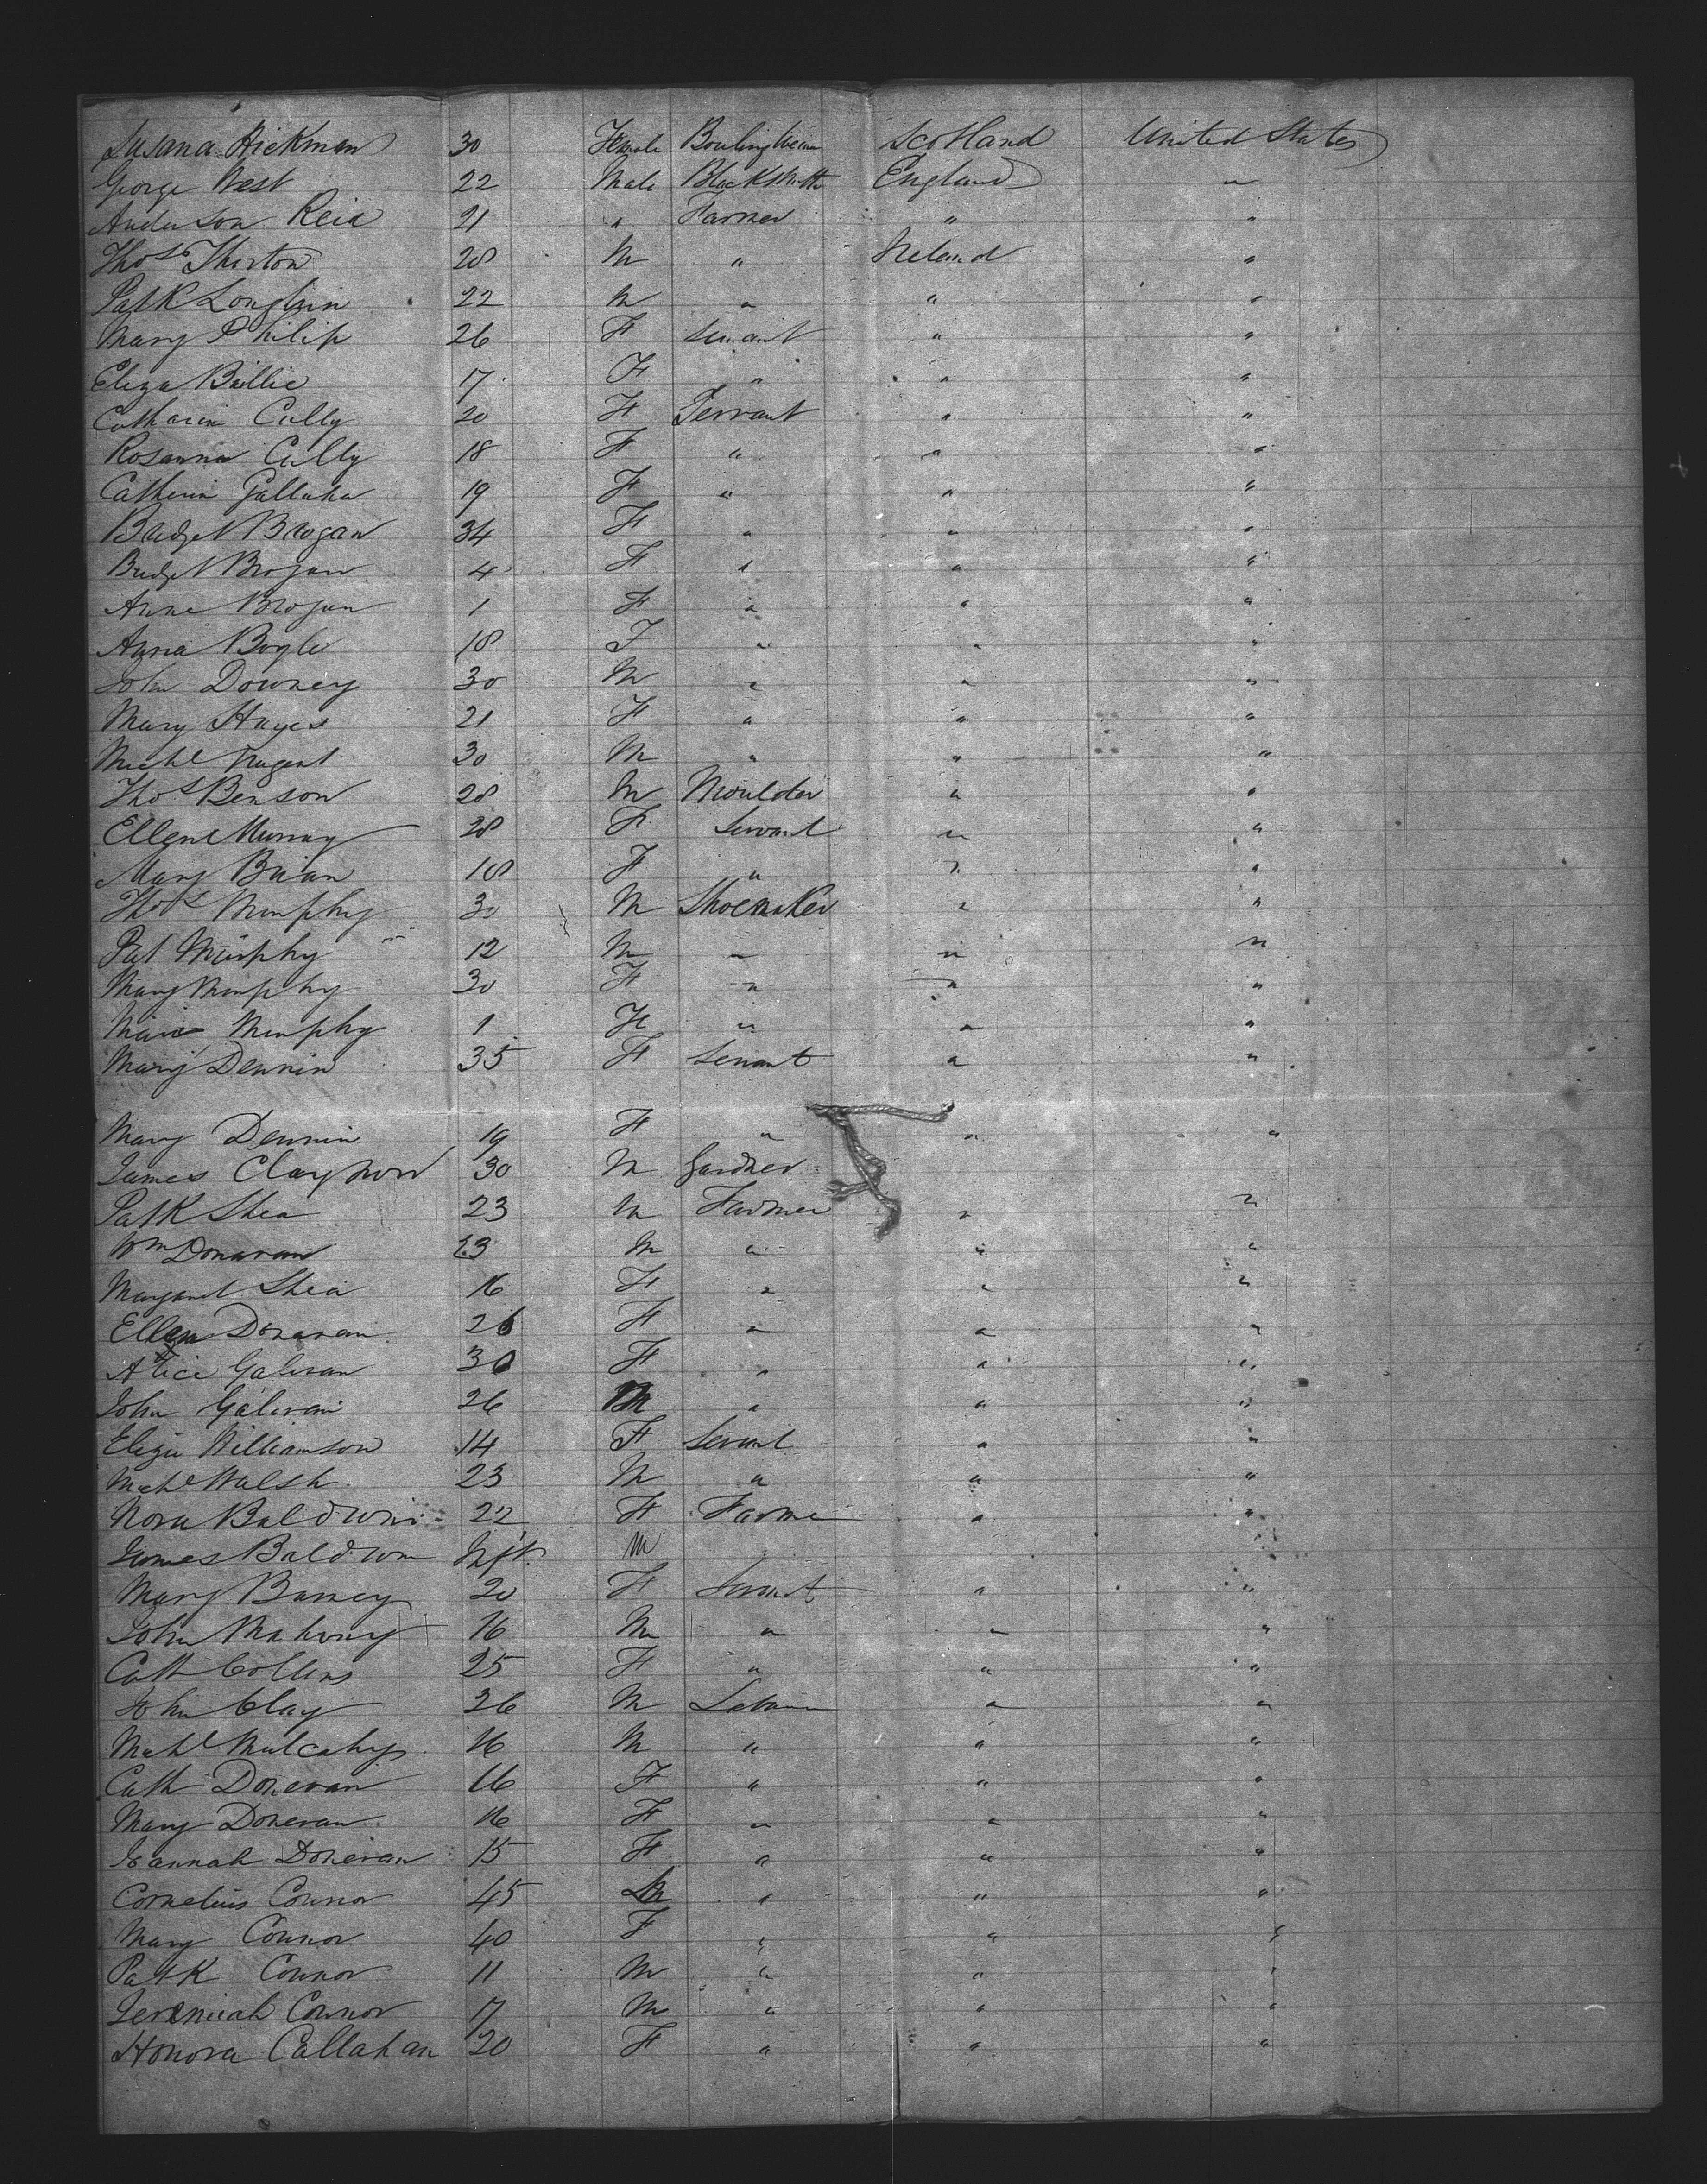 Susana Hickman 30 Female Scotland United States
George West 22 Male Blacksmith England "
Anderson Reid 21 " Farmer " "
Thos Thirton 28 M " Ireland "
Patk Loughrin 22 M " " "
Mary Philip 26 F Servant " "
Eliza Baillie 17 F " " "
Catharin Cully 20 F Servant " "
Rosanna Cully 18 F " " "
Catherin Gallaha 19 F " " "
Bridget Brogan 34 F " " "
Bridget Brogan 4 F " " "
Anne Brogan 1 F " " "
Anna Bogle 18 F " " "
John Downey 30 M " " "
Mary Hayes 21 F " " "
Michl Nugent 30 M " " "
Thos Benson 28 M Moulder " "
Ellen Murray 28 F Servant " "
Mary Brian 18 F " " "
Thos Murphy 30 M Shoemaker " "
Pat Murphy 12 M " " "
Mary Murphy 30 F " " "
Murphy 1 F " " "
Mary Dennin 35 F Servant " "
Mary Dennin 19 F " " "
James 30 M Gardner
Patk Shea 23 M Farmer " "
Wm Donavan 23 M " " "
Margaret Shea 16 F " " "
Ellen Donavan 26 F " " "
Alice Galivan 30 F " " "
John Galivan 26 M " " "
Eliza Williamson 14 F Servant " "
Michl Walsh 23 M " " "
Nora Baldwin 22 F Farmer " "
James Baldwin Inft. M "
Mary Barrey 20 F Servant " "
John Mahony 16 M " " "
Cath Collins 25 F " " "
John Clay 26 M Labourer " "
Michl Mulcahy 16 M " " "
Cath Donevan 16 F " " "
Mary Donevan 16 F " " "
Hannah Donevan 15 F " " "
Cornelius Connor 45 M " " "
Mary Connor 40 F " " "
Patk Connor 11 M " " "
Jeremiah Connor 17 M " " "
Honora Callahan 20 F " " "